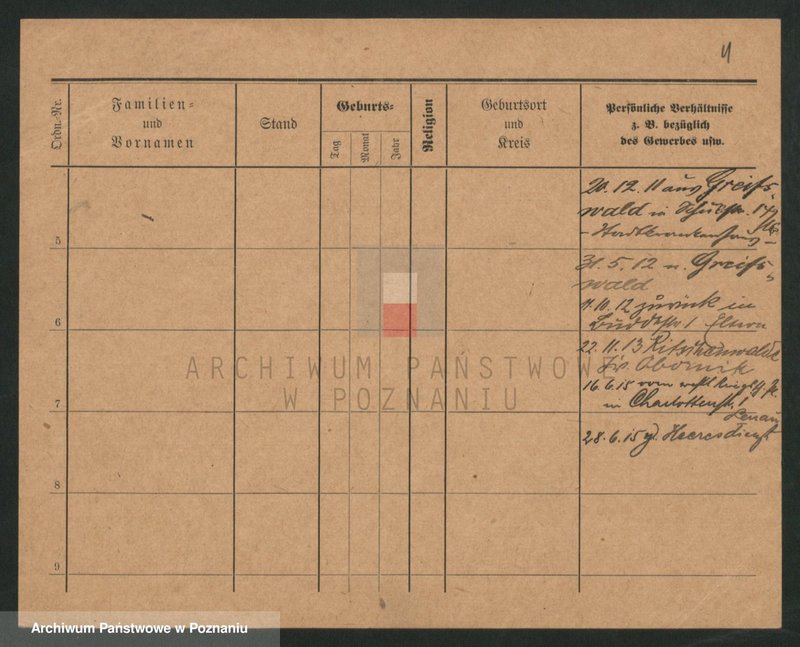 4
Ordn.-Nr.
Familien-
und
Vornamen
Stand
Geburts-
Tag
Monat
Jahr
Religion
Geburtsort
und
Kreis
Persönliche Verhältnisse
z. B. bezüglich
des Gewerbes usw.
20.12.11 aus Greifs-
wald in
5
31.5.12 n. Greifs-
wald
zurück in
6
22.11.13 Ritschenwalde
Obornik
16.6.15 vom
7
in Charlottenstr. 1
28.6.15 Heeresdienst
8
9
ARCHIWUM PAŃSTWOWE
W POZNANIU
Archiwum Państwowe w Poznaniu